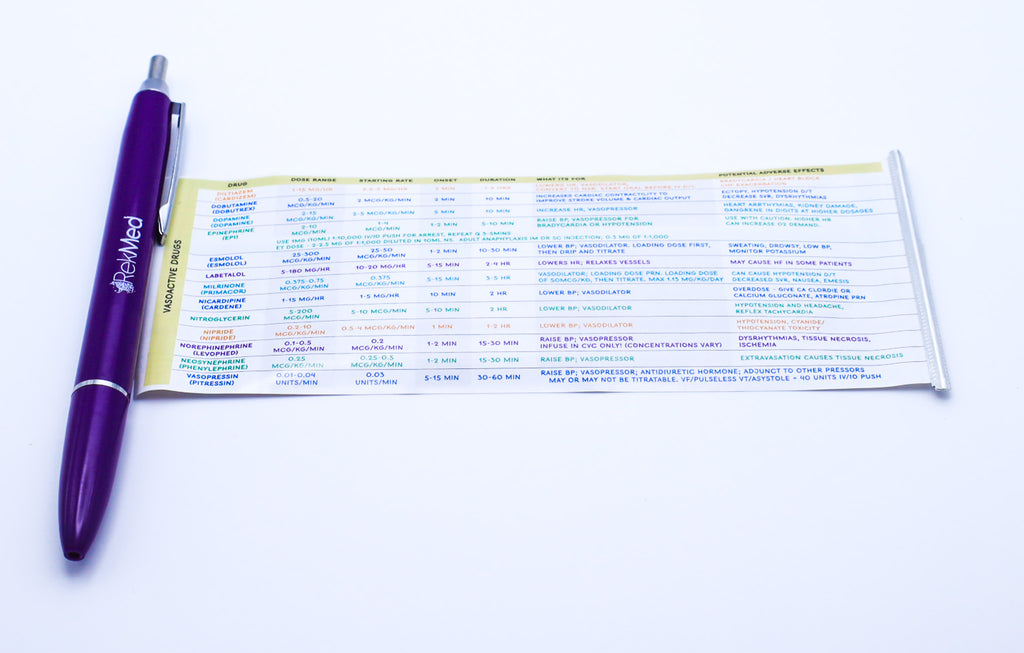 ReliMed
VASOACTIVE DRUGS
DRUG DOSE RANGE STARTING RATE ONSET DURATION WHAT ITS FOR POTENTIAL ADVERSE EFFECTS
DILTIAZEM 1-15 MG/HR 2 MIN LOWERS HR, VASODILATOR BRADYCARDIA / HEART BLOCK
(CARDIZEM)
DOBUTAMINE 0.5-20 2 MCG/KG/MIN 2 MIN 10 MIN INCREASES CARDIAC CONTRACTILITY TO ECTOPY, HYPOTENSION D/T
(DOBUTREX) MCG/KG/MIN IMPROVE STROKE VOLUME & CARDIAC OUTPUT DECREASE SVR, DYSRHYTHMIAS
DOPAMINE 2-15 2-5 MCG/KG/MIN 5 MIN 10 MIN INCREASE HR, VASOPRESSOR HEART ARRYTHMIAS, KIDNEY DAMAGE,
(DOPAMINE) MCG/KG/MIN GANGRENE IN DIGITS AT HIGHER DOSAGES
EPINEPHRINE 2-10 1-4 1-2 MIN 5-10 MIN RAISE BP, VASOPRESSOR FOR USE WITH CAUTION. HIGHER HR
(EPI) MCG/MIN MCG/MIN BRADYCARDIA OR HYPOTENSION CAN INCREASE O2 DEMAND.
USE 1MG (10ML) 1:10,000 IV/IO PUSH FOR ARREST, REPEAT Q 3-5MINS
ET DOSE - 2-2.5 MG OF 1:1,000 DILUTED IN 10ML NS. ADULT ANAPHYLAXIS IM OR SQ INJECTION; 0.3 MG OF 1:1,000
ESMOLOL 25-300 25-50 1-2 MIN 10-30 MIN LOWER BP; VASODILATOR. LOADING DOSE FIRST, SWEATING, DROWSY, LOW BP,
(ESMOLOL) MCG/KG/MIN MCG/KG/MIN THEN DRIP AND TITRATE MONITOR POTASSIUM
LABETALOL 5-180 MG/HR 10-20 MG/HR 5-15 MIN 2-4 HR LOWERS HR; RELAXES VESSELS MAY CAUSE HF IN SOME PATIENTS
MILRINONE 0.375-0.75 0.375 5-15 MIN 3-5 HR VASODILATOR; LOADING DOSE PRN. LOADING DOSE CAN CAUSE HYPOTENSION D/T
(PRIMACOR) MCG/KG/MIN MCG/KG/MIN OF 50MCG/KG, THEN TITRATE. MAX 1.13 MG/KG/DAY DECREASED SVR, NAUSEA, EMESIS
NICARDIPINE 1-15 MG/HR 1-5 MG/HR 10 MIN 2 HR LOWER BP; VASODILATOR OVERDOSE - GIVE CA CLORDIE OR
(CARDENE) CALCIUM GLUCONATE, ATROPINE PRN
NITROGLYCERIN 5-200 5-10 MCG/MIN 5-10 MIN 2 HR LOWER BP; VASODILATOR HYPOTENSION AND HEADACHE,
MCG/MIN REFLEX TACHYCARDIA
NIPRIDE 0.2-10 0.5-4 MCG/KG/MIN 1 MIN 1-2 HR LOWER BP; VASODILATOR HYPOTENSION, CYANIDE/
(NIPRIDE) MCG/KG/MIN THIOCYANATE TOXICITY
NOREPHINEPHRINE 0.1-0.5 0.2 1-2 MIN 15-30 MIN RAISE BP; VASOPRESSOR DYSRHYTHMIAS, TISSUE NECROSIS,
(LEVOPHED) MCG/KG/MIN MCG/KG/MIN INFUSE IN CVC ONLY! (CONCENTRATIONS VARY) ISCHEMIA
NEOSYNEPHRINE 0.25 0.25-0.5 1-2 MIN 15-30 MIN RAISE BP; VASOPRESSOR EXTRAVASATION CAUSES TISSUE NECROSIS
(PHENYLEPHRINE) MCG/KG/MIN MCG/KG/MIN
VASOPRESSIN 0.01-0.04 0.03 5-15 MIN 30-60 MIN RAISE BP; VASOPRESSOR; ANTIDIURETIC HORMONE; ADJUNCT TO OTHER PRESSORS
(PITRESSIN) UNITS/MIN UNITS/MIN MAY OR MAY NOT BE TITRATABLE. VF/PULSELESS VT/ASYSTOLE - 40 UNITS IV/IO PUSH